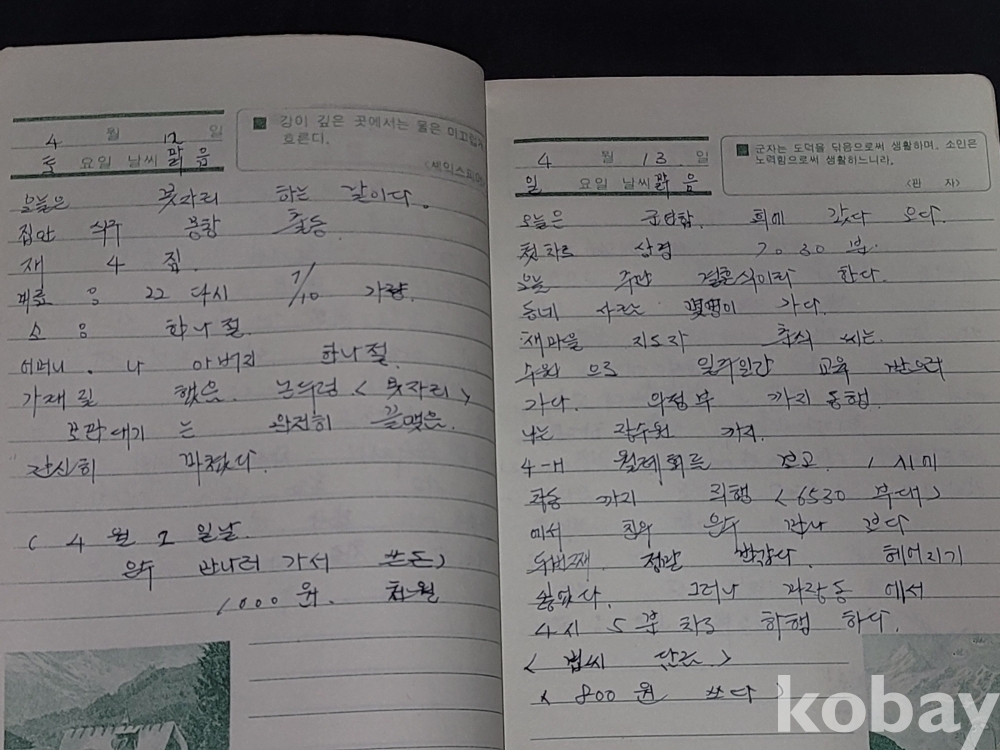 4 월 12 일
토 요일 날씨 맑음
강이 깊은 곳에서는 물은 미끄럽게
흐른다.
<셰익스피어
오늘은 못자리 하는 날이다.
집안 식구 몽창 출동
재 4 짚
비료 응 22 다시 7/10 가량.
소 응 하나절
어머니. 나 아버지 하나절
가재질 했음. 논두렁 <못자리>
모판대기 는 완전히 끝맺음.
간신히 마쳤다.
( 4 월 2 일날
은수 만나러 가서 쓰돈)
1000 원. 천원
4 월 13. 일
일 요일 날씨 맑음
군자는 도덕을 닦음으로써 생활하며, 소인은
노력함으로써 생활하느니라.
<관 자>
오늘은 군연합. 회에 갔다 오다.
첫차로 상경 7º 30 분.
오늘 주관 결혼식이라 한다.
동네 사람 몇명이 가다.
새마을 지도자 춘식 씨는.
수원 으로 일주일간 교육 받으러
가다. 의정부 까지 동행.
나는
4-H 월례회를 보고. 1 시에
까지 <6530 부대>
에서 친우 은수 만나 보다
두번째. 정말 반갑다. 헤어지기
싫었다. 그러나 에서
4시 5 분 차로 하행 하다.
<
< 800 원 쓰다 >
kobay